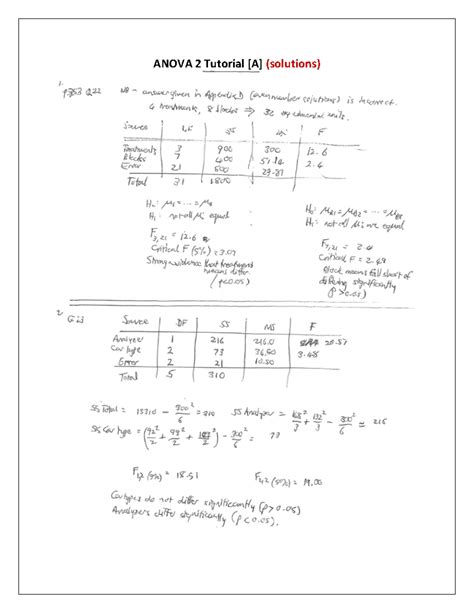 ANOVA 2 Tutorial [A] (solutions)
1.
p353 Q22 NB - answer given in Appendix D (even number solutions) is incorrect.
4 treatments, 8 blocks ⇒ 32 experimental units.
Source DF SS MS F
Treatments 3 900 300 12.6
Blocks 7 400 57.14 2.4
Error 21 500 23.81
Total 31 1800
H₀: μ₁ = ... = μ
H₁: not all μi equal
F3,21 = 12.6
Critical F (5%) = 3.07
Strong evidence that treatment
means differ
(p<0.05)
H₀: μB1 = μB2 = ... = μB8
H₁: not all μi are equal
F7,21 = 2.4
Critical F = 2.49
Block means fall short of
differing significantly
(p>0.05)
2.
Source DF SS MS F
Analyzer 1 216 216.0 20.57
Car type 2 73 36.50 3.48
Error 2 21 10.50
Total 5 310
SS Total = 15310 - 300²/6 = 310 SS Analyzer = 168²/3 + 132²/3 - 300²/6 = 216
SS Car type = (92²/2 + 99²/2 + ²/2) - 300²/6 = 73
F1,2 (5%) = 18.51 F2,2 (5%) = 19.00
Car types do not differ significantly (p>0.05)
Analyzers differ significantly (p<0.05).